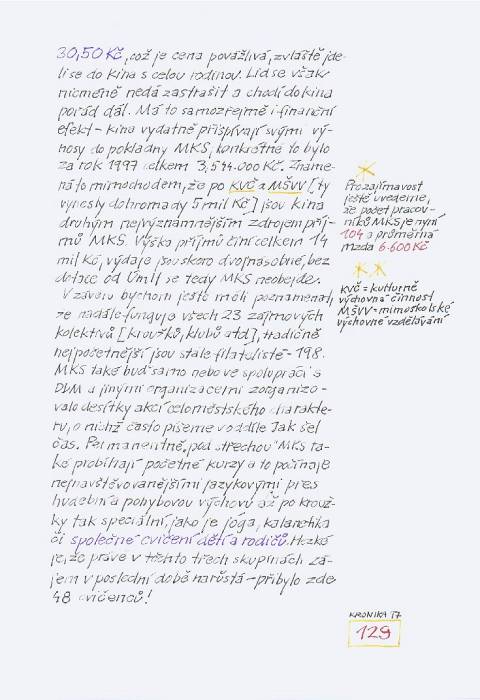 30,50 Kč, což je cena považlivá, zvláště jde-
li se do kina s celou rodinou. Lid se však
nicméně nedá zastrašit a chodí do kina
pořád dál. Má to samozřejmě i finanční
efekt – kina vydatně přispívají svými vý-
nosy do pokladny MKS, konkrétně to bylo
za rok 1997 celkem 3,544.000 Kč. Zname-
ná to mimochodem, že po KVČ a MŠVV [ty
vynesly dohromady 5 mil Kč] jsou kina
druhým nejvýznamnějším zdrojem příj-
mů MKS. Výška příjmů činí celkem 14
mil Kč, výdaje jsou skoro dvojnásobné, bez
dotace od ÚmÚ se tedy MKS neobejde.
V závěru bychom ještě měli poznamenat,
že nadále funguje všech 23 zájmových
kolektivů [kroužků, klubů atd], tradičně
nejpočetnější jsou stále filatelisté – 198.
MKS také buď samo nebo ve spolupráci s
DDM a jinými organizacemi zorganizo-
valo desítky akcí celoměstského charakte-
ru, o nichž často píšeme v oddíle Jak šel
čas. Permanentně „pod střechou" MKS ta-
ké probíhají početné kurzy a to počínaje
nejnavštěvovanějšími jazykovými přes
hudební a pohybovou výchovu až po krouž-
ky tak speciální, jako je jóga, kalanetika
či společné cvičení dětí a rodičů. Hezké
je, že právě v těchto třech skupinách zá-
jem v poslední době narůstá – přibylo zde
48 cvičenců!
Pro zajímavost
ještě uvedeme,
že počet pracov-
níků MKS je nyní
104 a průměrná
mzda 6.600 Kč
KVČ = kulturně
výchovná činnost
MŠVV = mimoškolské
výchovné vzdělávání
KRONIKA '97
129